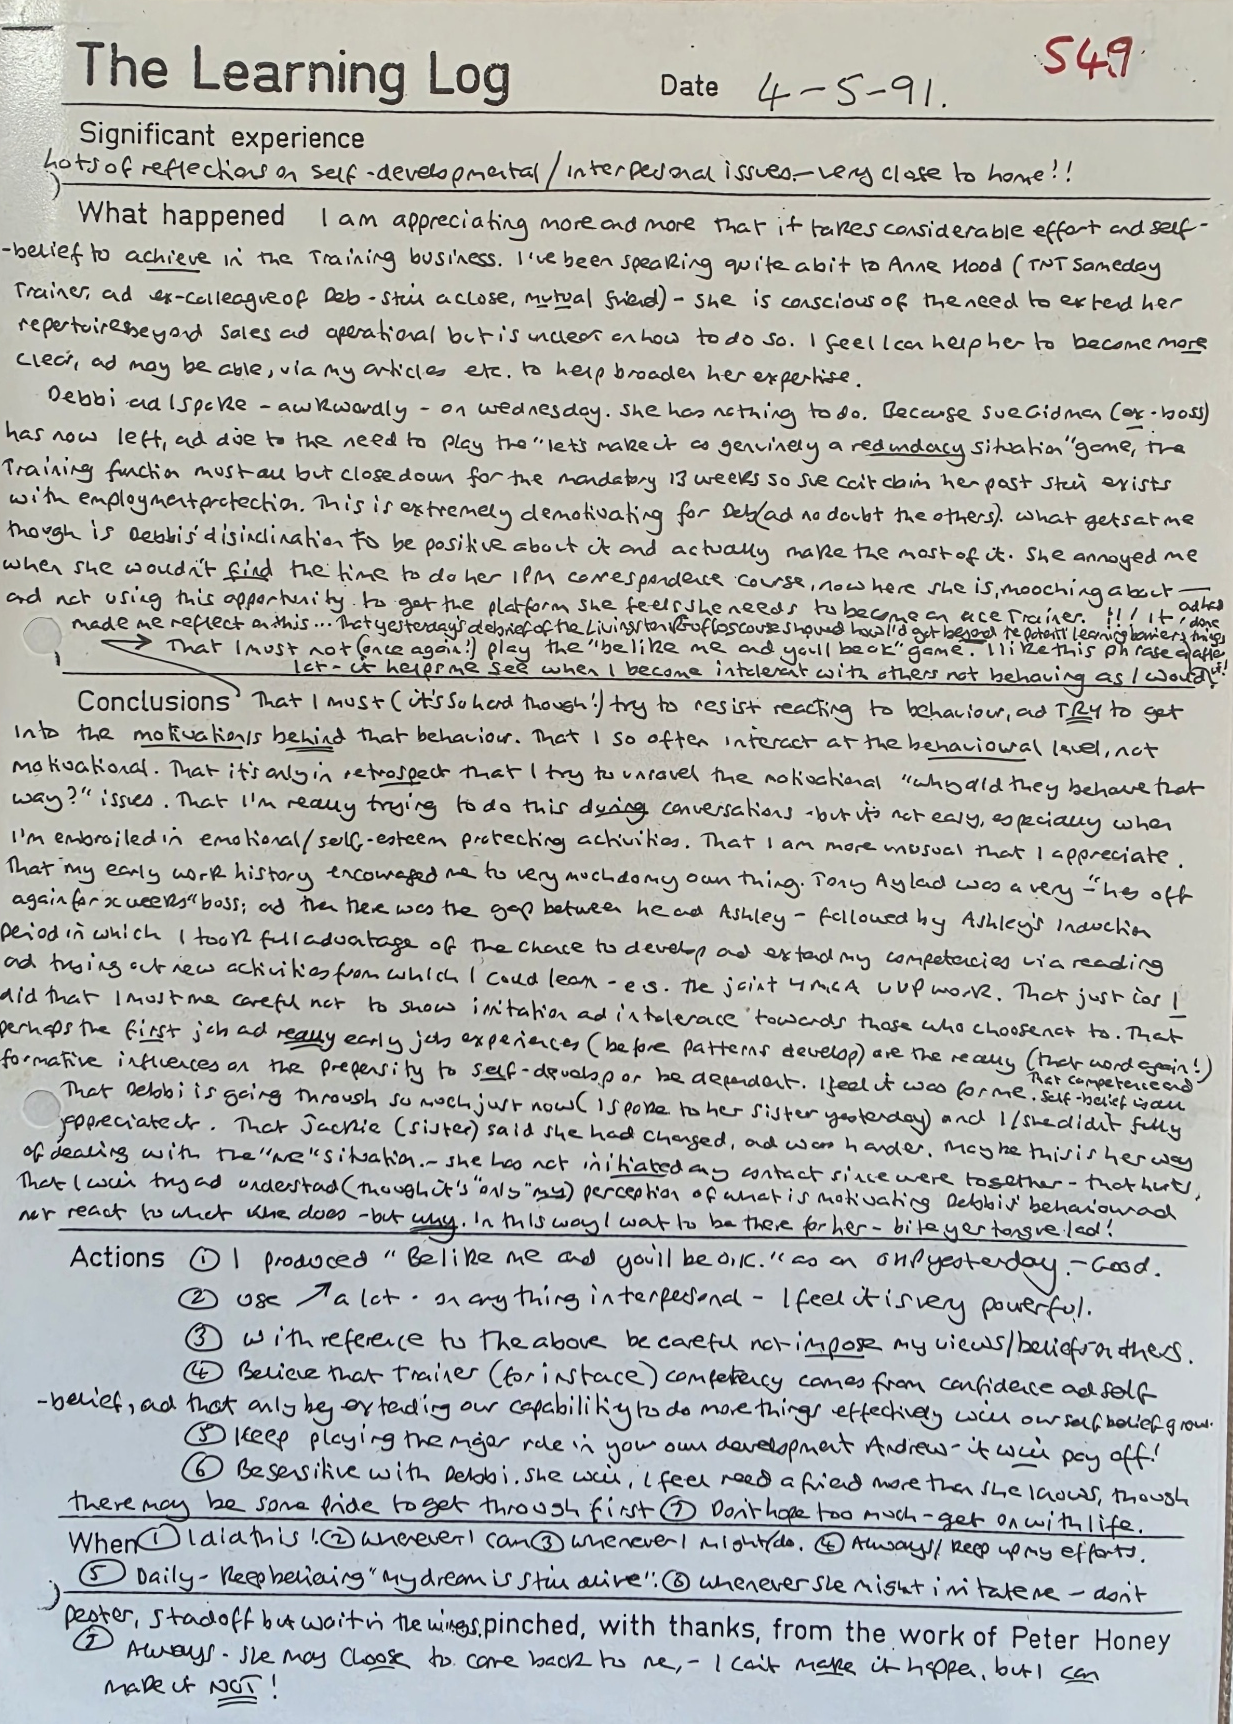 The Learning Log Date 4-5-91. 549
Significant experience
Lots of reflections on self-developmental/interpersonal issues - very close to home!!
What happened I am appreciating more and more that it takes considerable effort and self-
-belief to achieve in the Training business. I've been speaking quite a bit to Anne Hood (TNT Sameday
Trainer, ad ex-colleague of Deb - still a close, mutual friend) - she is conscious of the need to extend her
repertoire beyond sales ad operational but is unclear on how to do so. I feel I can help her to become more
clear, ad may be able, via my articles etc. to help broaden her expertise.
Debbi ad I spoke - awkwardly - on wednesday. She has nothing to do. Because Sue Gidman (ex-boss)
has now left, ad due to the need to play the "let's make it as genuinely a redundacy situation" game, the
Training function must all but close down for the mandatory 13 weeks so Sue can't claim her post still exists
with employment protection. This is extremely demotivating for Deb (ad no doubt the others). What gets at me
though is Debbi's disinclination to be positive about it and actually make the most of it. She annoyed me
when she wouldn't find the time to do her IPM correspondence course, now here she is, mooching about -
ad not using this opportunity to get the platform she feels she needs to become an ace Trainer. !!! It
made me reflect on this... That yesterday's debrief of the Livingston course showed how I'd got beyond potential learning barriers, ad had done things
That I must not (once again!) play the "be like me and you'll be ok" game. I like this phrase a
lot - it helps me see when I become intolerant with others not behaving as I would!
Conclusions That I must (it's so hard though!) try to resist reacting to behaviour, ad TRY to get
into the motivation/s behind that behaviour. That I so often interact at the behavioural level, not
motivational. That it's only in retrospect that I try to unravel the motivational "why did they behave that
way?" issues. That I'm really trying to do this during conversations - but it's not easy, especially when
I'm embroiled in emotional/self-esteem protecting activities. That I am more unusual that I appreciate.
That my early work history encouraged me to very much do my own thing. Tony Aylad was a very - "he's off
again for x weeks" boss; ad then there was the gap between he ad Ashley - followed by Ashley's induction
period in which I took full advantage of the chance to develop ad extend my competencies via reading
ad trying out new activities from which I could learn - e.g. the joint YMCA UVP work. That just cos I
did that I must me careful not to show irritation ad intolerance towards those who choose not to. That
perhaps the first job ad really early job experiences (before patterns develop) are the really (that word again!)
formative influences on the propensity to self-develop or be dependent. I feel it was for me. That competence and self-belief is all
That Debbi is going through so much just now (I spoke to her sister yesterday) and I/she didn't fully
appreciate it. That Jackie (sister) said she had changed, ad was harder. Maybe this is her way
of dealing with the "me" situation. - she has not initiated any contact since were together - that hurts.
That I will try ad understad (though it's "only" my) perception of what is motivating Debbi's behaviour ad
not react to what she does - but why. In this way I wat to be there for her - bite yer tongue lad!
Actions ① I produced "Be like me and you'll be O.K." as an OHP yesterday. - Good.
② Use ↗ a lot. on anything interpersonal - I feel it is very powerful.
③ With reference to the above be careful not impose my views/beliefs on others.
④ Believe that Trainer (for instace) competency comes from confidence ad self-
-belief, ad that only by extending our capability to do more things effectively will our self belief grow.
⑤ Keep playing the major role in your own development Andrew - it will pay off!
⑥ Be sensitive with Debbi. She will, I feel need a friend more than she knows, though
there may be some pride to get through first ⑦ Don't hope too much - get on with life.
When ① I did this! ② wherever I can ③ whenever I might/do. ④ Always/keep up my efforts.
⑤ Daily - keep believing "my dream is still alive". ⑥ whenever she might irritate me - don't
pester, stad off but wait in the wings. pinched, with thanks, from the work of Peter Honey
⑦ Always - she may choose to come back to me, - I can't make it happen, but I can
make it NOT!